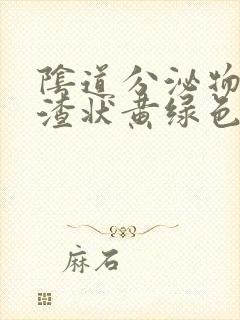 陰道分泌物
渣状黄绿色
麻石